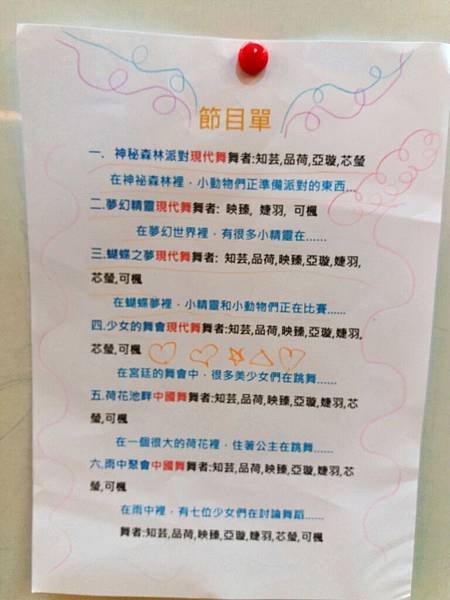 節目單
一. 神秘森林派對現代舞舞者:知芸,品荷,亞璇,芯瑩
在神秘森林裡，小動物們正準備派對的東西...
二.夢幻精靈現代舞舞者: 映臻, 婕羽, 可楓
在夢幻世界裡，有很多小精靈在......
三.蝴蝶之夢現代舞舞者: 知芸,品荷,映臻,亞璇,婕羽,
芯瑩,可楓
在蝴蝶夢裡，小精靈和小動物們正在比賽......
四.少女的舞會現代舞舞者:知芸,品荷,映臻,亞璇,婕羽,
芯瑩,可楓
在宮廷的舞會中，很多美少女們在跳舞......
五.荷花池畔中國舞舞者:知芸,品荷,映臻,亞璇,婕羽,芯
瑩,可楓
在一個很大的荷花裡，住著公主在跳舞......
六.雨中聚會中國舞舞者:知芸,品荷,映臻,亞璇,婕羽,芯
瑩,可楓
在雨中裡，有七位少女們在討論舞蹈......
舞者:知芸,品荷,映臻,亞璇,婕羽,芯瑩,可楓